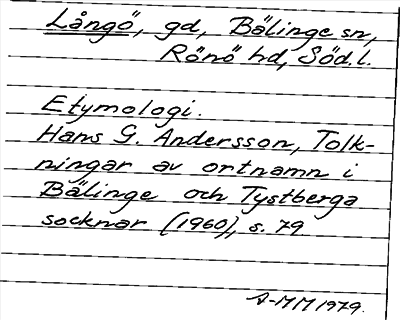 Långö, gd, Bälinge sn,
Rönö hd, Söd.l.
Etymologi.
Hans G. Andersson, Tolk-
ningar av ortnamn i
Bälinge och Tystberga
socknar (1960), s. 79
A-MM 1979.